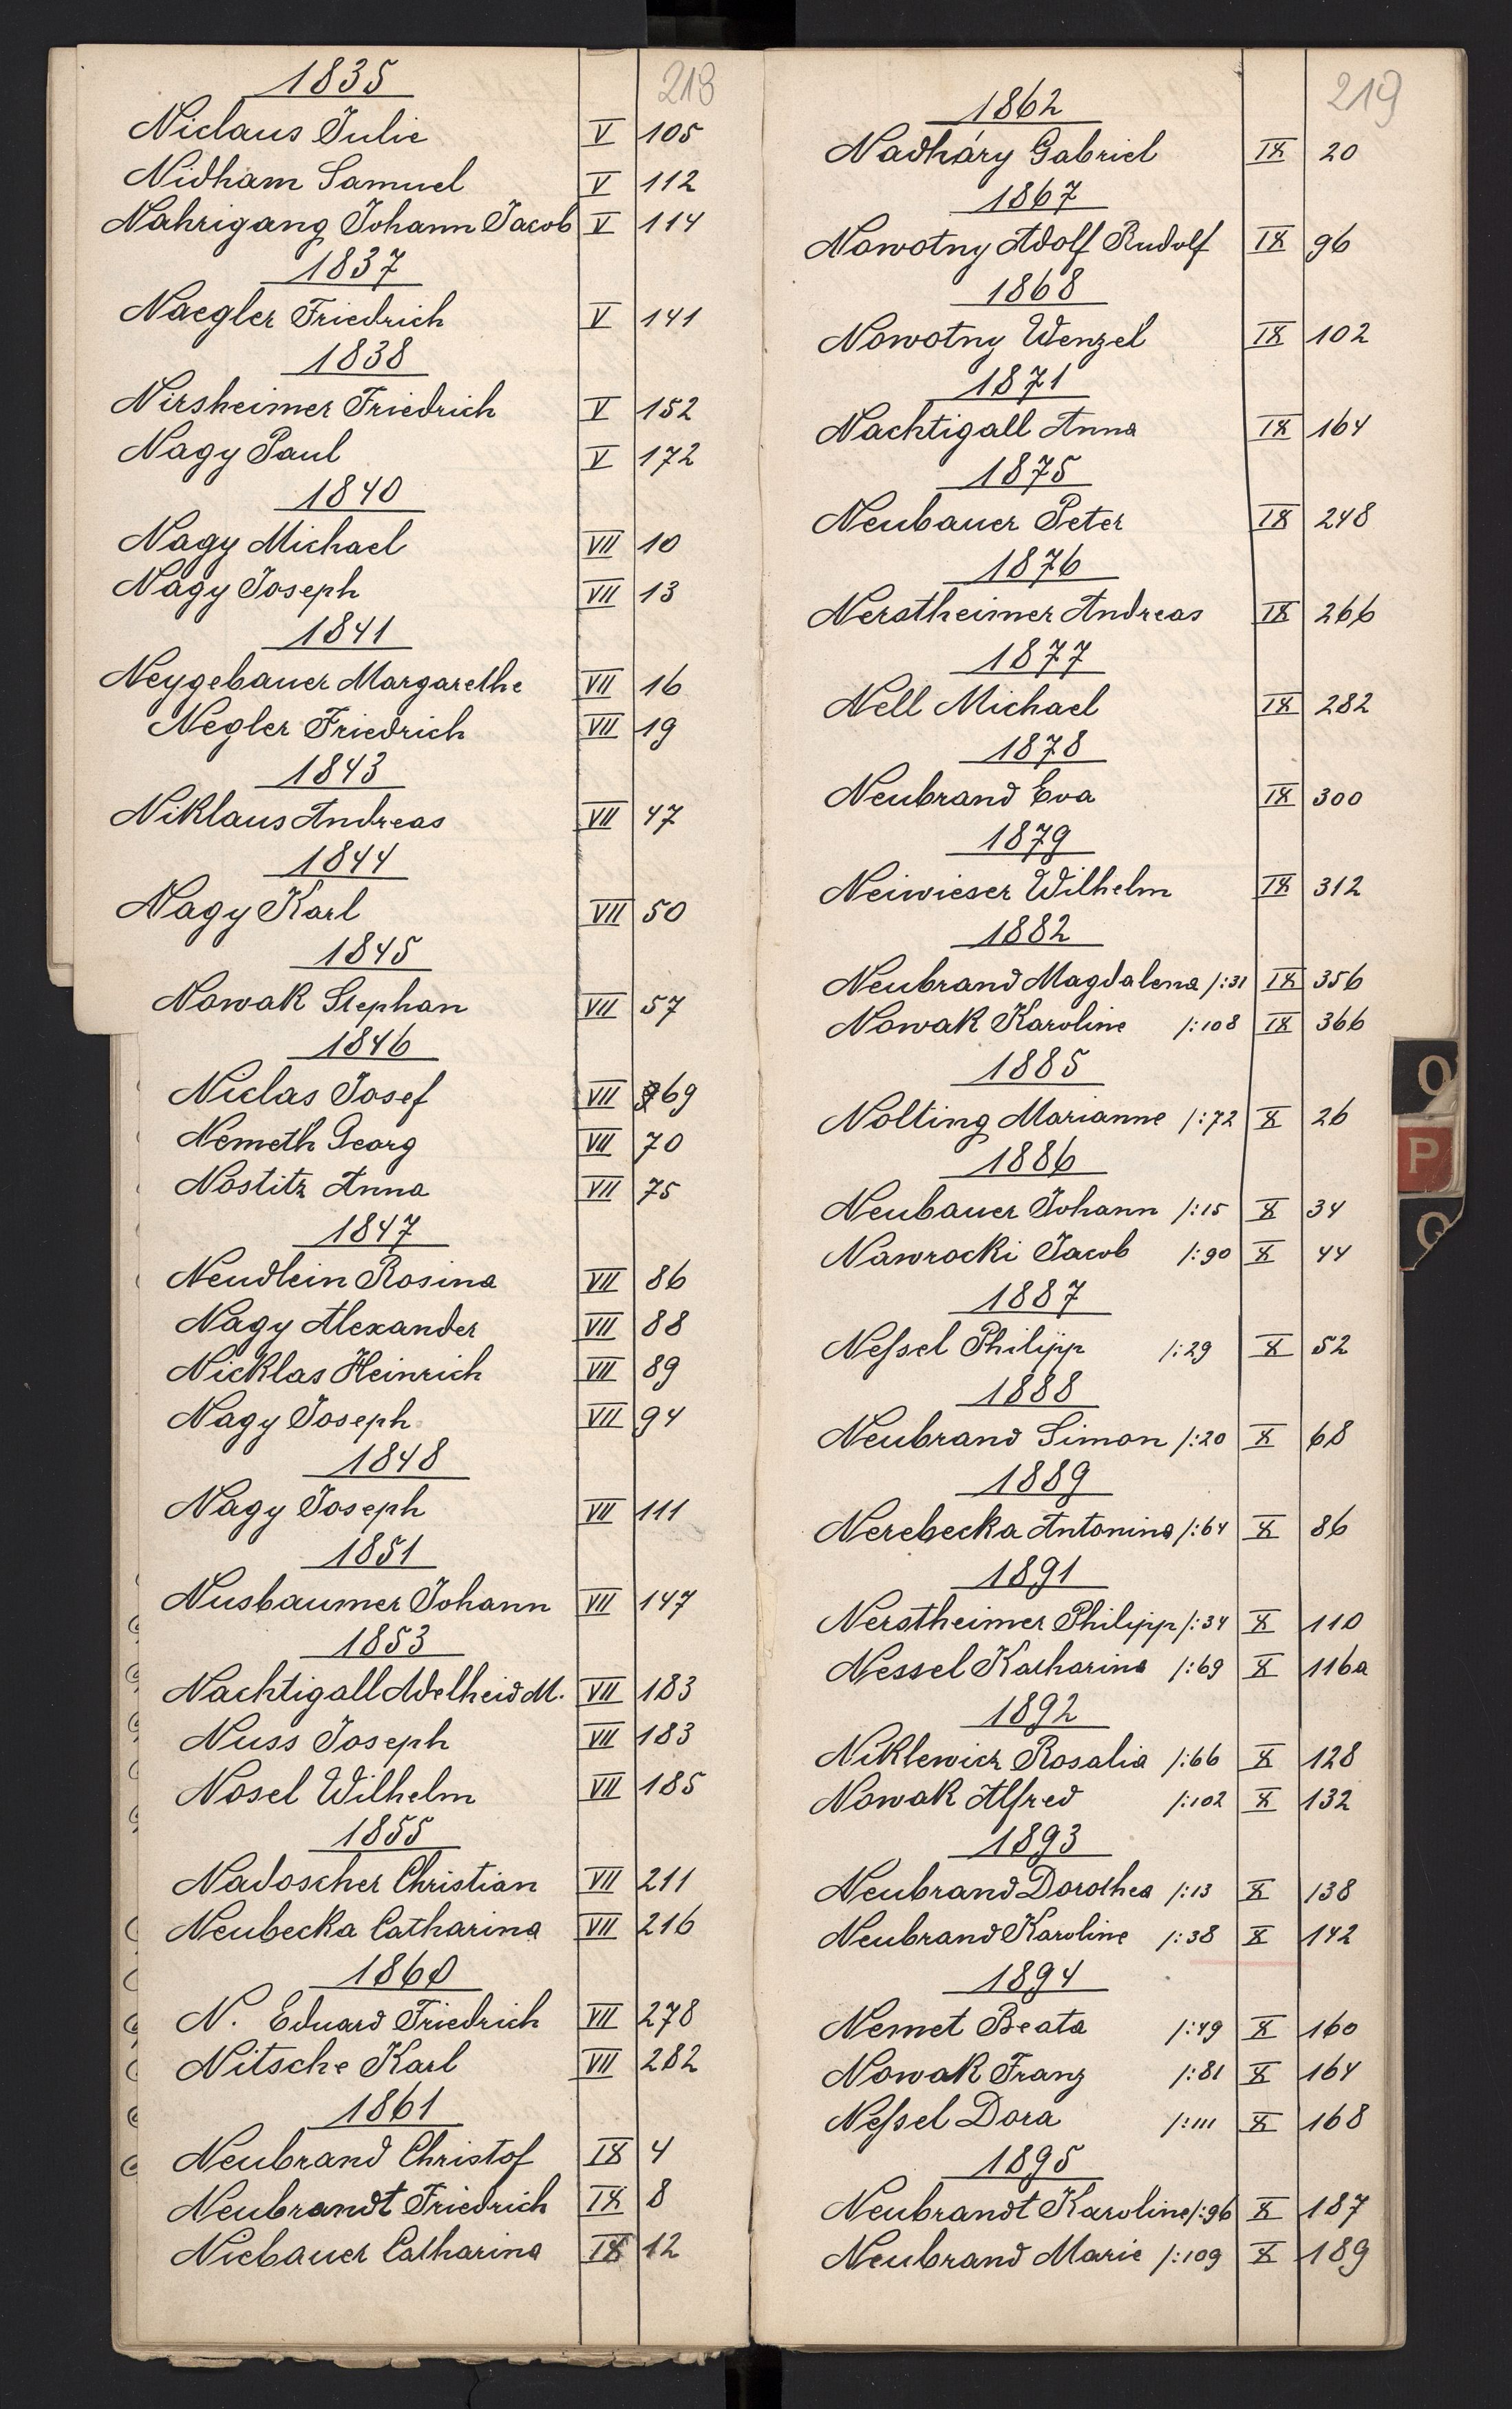 218
1835
Niclaus Julie V 105
Nidham Samuel V 112
Nahrigang Johann Jacob V 114
1837
Naegler Friedrich V 141
1838
Nirsheimer Friedrich V 152
Nagy Paul V 172
1840
Nagy Michael VII 10
Nagy Joseph VII 13
1841
Neygebauer Margarethe VII 16
Negler Friedrich VII 19
1843
Niklaus Andreas VII 47
1844
Nagy Karl VII 50
1845
Nowak Stephan VII 57
1846
Niclas Josef VII 69
Nemeth Georg VII 70
Nostitz Anna VII 75
1847
Neudlein Rosina VII 86
Nagy Alexander VII 88
Nicklas Heinrich VII 89
Nagy Joseph VII 94
1848
Nagy Joseph VII 111
1851
Nusbaumer Johann VII 147
1853
Nachtigall Adelheid M. VII 183
Nuss Joseph VII 183
Nosel Wilhelm VII 185
1855
Nadoscher Christian VII 211
Neubecka Catharina VII 216
1860
N. Eduard Friedrich VII 278
Nitsche Karl VII 282
1861
Neubrand Christof IX 4
Neubrandt Friedrich IX 8
Niebauer Catharina IX 12
219
1862
Nadháry Gabriel IX 20
1867
Nowotny Adolf Rudolf IX 96
1868
Nowotny Wenzel IX 102
1871
Nachtigall Anna IX 164
1875
Neubauer Peter IX 248
1876
Nerstheimer Andreas IX 266
1877
Nell Michael IX 282
1878
Neubrand Eva IX 300
1879
Neiwieser Wilhelm IX 312
1882
Neubrand Magdalena /:31 IX 356
Nowak Karoline /:108 IX 366
1885
Nolting Marianne /:72 X 26
1886
Neubauer Johann /:15 X 34
Nawrocki Jacob /:90 X 44
1887
Neſsel Philipp /:29 X 52
1888
Neubrand Simon /:20 X 68
1889
Nerebecka Antonina /:64 X 86
1891
Nerstheimer Philipp /:34 X 110
Nessel Katharina /:69 X 116a
1892
Niklewicz Rosalia /:66 X 128
Nowak Alfred /:102 X 132
1893
Neubrand Dorothea /:13 X 138
Neubrand Karoline /:38 X 142
1894
Nemet Beata /:49 X 160
Nowak Franz /:81 X 164
Neſsel Dora /:111 X 168
1895
Neubrandt Karoline /:96 X 187
Neubrand Marie /:109 X 189
O
P
Q